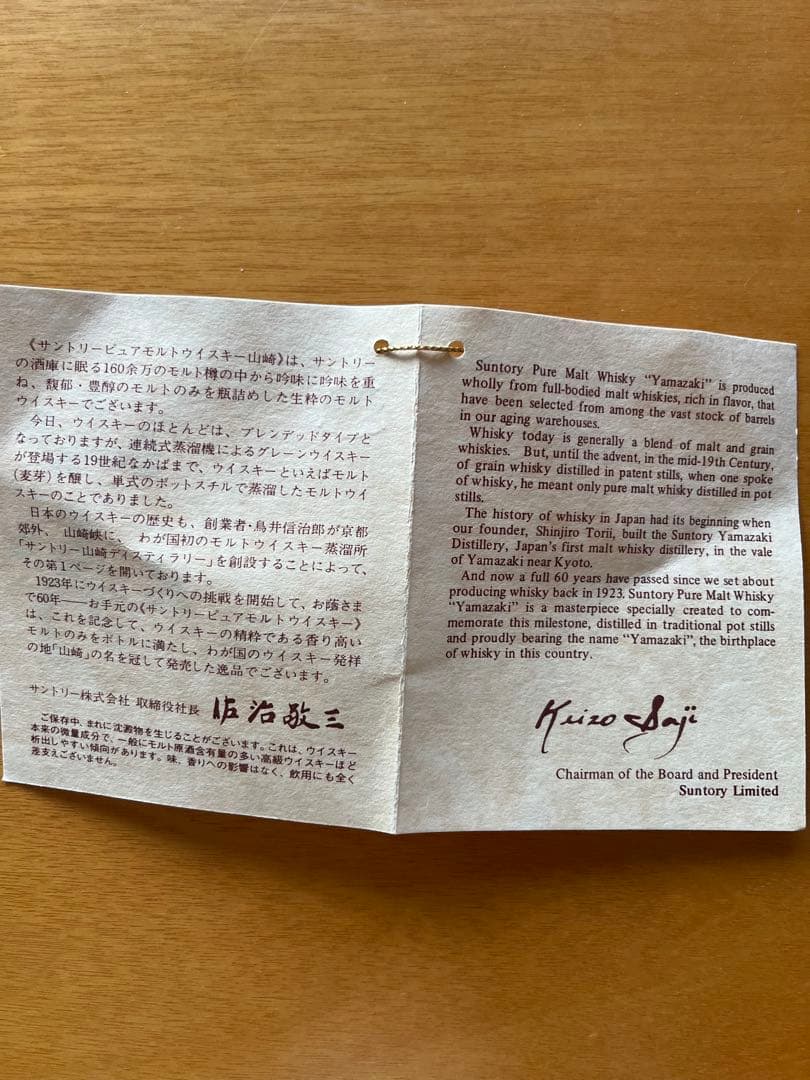 《サントリーピュアモルトウイスキー山崎》は、サントリー
の酒庫に眠る160余万のモルト樽の中から吟味に吟味を重
ね、馥郁・豊醇のモルトのみを瓶詰めした生粋のモルト
ウイスキーでございます。
今日、ウイスキーのほとんどは、ブレンデッドタイプと
なっておりますが、連続式蒸溜機によるグレーンウイスキー
が登場する19世紀なかばまで、ウイスキーといえばモルト
(麦芽)を醸し、単式のポットスチルで蒸溜したモルトウイ
スキーのことでありました。
日本のウイスキーの歴史も、創業者・鳥井信治郎が京都
郊外、山崎峡に、わが国初のモルトウイスキー蒸溜所
「サントリー山崎ディスティラリー」を創設することによって、
その第1ページを開いております。
1923年にウイスキーづくりへの挑戦を開始して、お蔭さま
で60年——お手元の《サントリーピュアモルトウイスキー》
は、これを記念して、ウイスキーの精粋である香り高い
モルトのみをボトルに満たし、わが国のウイスキー発祥
の地「山崎」の名を冠して発売した逸品でございます。
サントリー株式会社 取締役社長 佐治敬三
ご保存中、まれに沈澱物を生じることがございます。これは、ウイスキー
本来の微量成分で、一般にモルト原酒含有量の多い高級ウイスキーほど
析出しやすい傾向があります。味、香りへの影響はなく、飲用にも全く
差支えございません。
Suntory Pure Malt Whisky “Yamazaki” is produced
wholly from full-bodied malt whiskies, rich in flavor, that
have been selected from among the vast stock of barrels
in our aging warehouses.
Whisky today is generally a blend of malt and grain
whiskies. But, until the advent, in the mid-19th Century,
of grain whisky distilled in patent stills, when one spoke
of whisky, he meant only pure malt whisky distilled in pot
stills.
The history of whisky in Japan had its beginning when
our founder, Shinjiro Torii, built the Suntory Yamazaki
Distillery, Japan's first malt whisky distillery, in the vale
of Yamazaki near Kyoto.
And now a full 60 years have passed since we set about
producing whisky back in 1923. Suntory Pure Malt Whisky
“Yamazaki” is a masterpiece specially created to com-
memorate this milestone, distilled in traditional pot stills
and proudly bearing the name “Yamazaki”, the birthplace
of whisky in this country.
Keizo Saji
Chairman of the Board and President
Suntory Limited